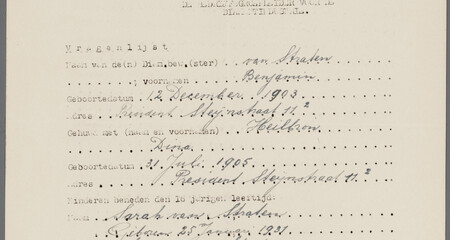 Vragenlijst
Naam van de(n) Diam.bew.(ster) van Straten
; voornamen Benjamin
Geboortedatum 12 December 1903
Adres President Steijnstraat 11.²
Gehuwd met (naam en voornamen) Heilbron
Dina
Geboortedatum 31 Juli 1905
Adres President Steijnstraat 11.²
Kinderen beneden den 16 jarigen leeftijd:
Naam Sarah van Straten
Geboren 25 Januari 1931